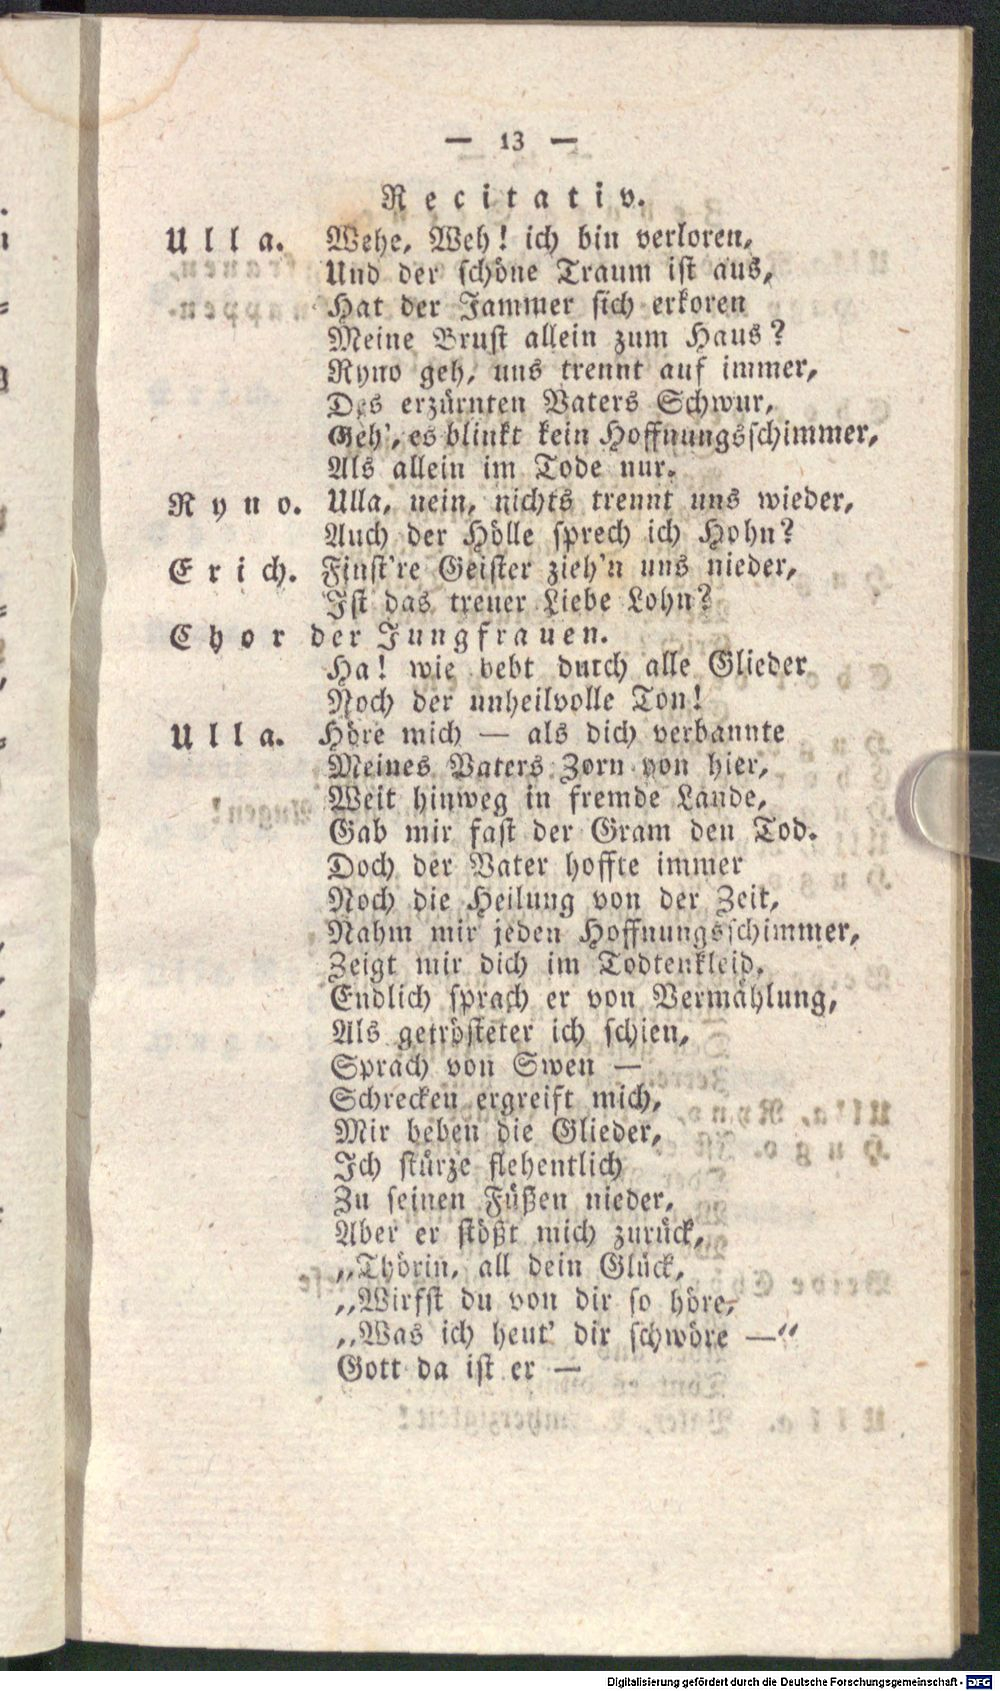 — 13 —
Recitativ.
Ulla. Wehe, Weh! ich bin verloren,
Und der schöne Traum ist aus,
Hat der Jammer sich erkoren
Meine Brust allein zum Haus?
Ryno geh, uns trennt auf immer,
Des erzürnten Vaters Schwur,
Geh', es blinkt kein Hoffnungsschimmer,
Als allein im Tode nur.
Ryno. Ulla, nein, nichts trennt uns wieder,
Auch der Hölle sprech ich Hohn?
Erich. Finst're Geister zieh'n uns nieder,
Ist das treuer Liebe Lohn?
Chor der Jungfrauen.
Ha! wie bebt durch alle Glieder
Noch der unheilvolle Ton!
Ulla. Höre mich — als dich verbannte
Meines Vaters Zorn von hier,
Weit hinweg in fremde Lande,
Gab mir fast der Gram den Tod.
Doch der Vater hoffte immer
Noch die Heilung von der Zeit,
Nahm mir jeden Hoffnungsschimmer,
Zeigt mir dich im Todtenkleid.
Endlich sprach er von Vermählung,
Als getrösteter ich schien,
Sprach von Swen —
Schrecken ergreift mich,
Mir beben die Glieder,
Ich stürze flehentlich
Zu seinen Füßen nieder,
Aber er stößt mich zurück,
„Thörin, all dein Glück,
„Wirfst du von dir so höre,
„Was ich heut' dir schwöre —“
Gott da ist er —
Digitalisierung gefördert durch die Deutsche Forschungsgemeinschaft - DFG